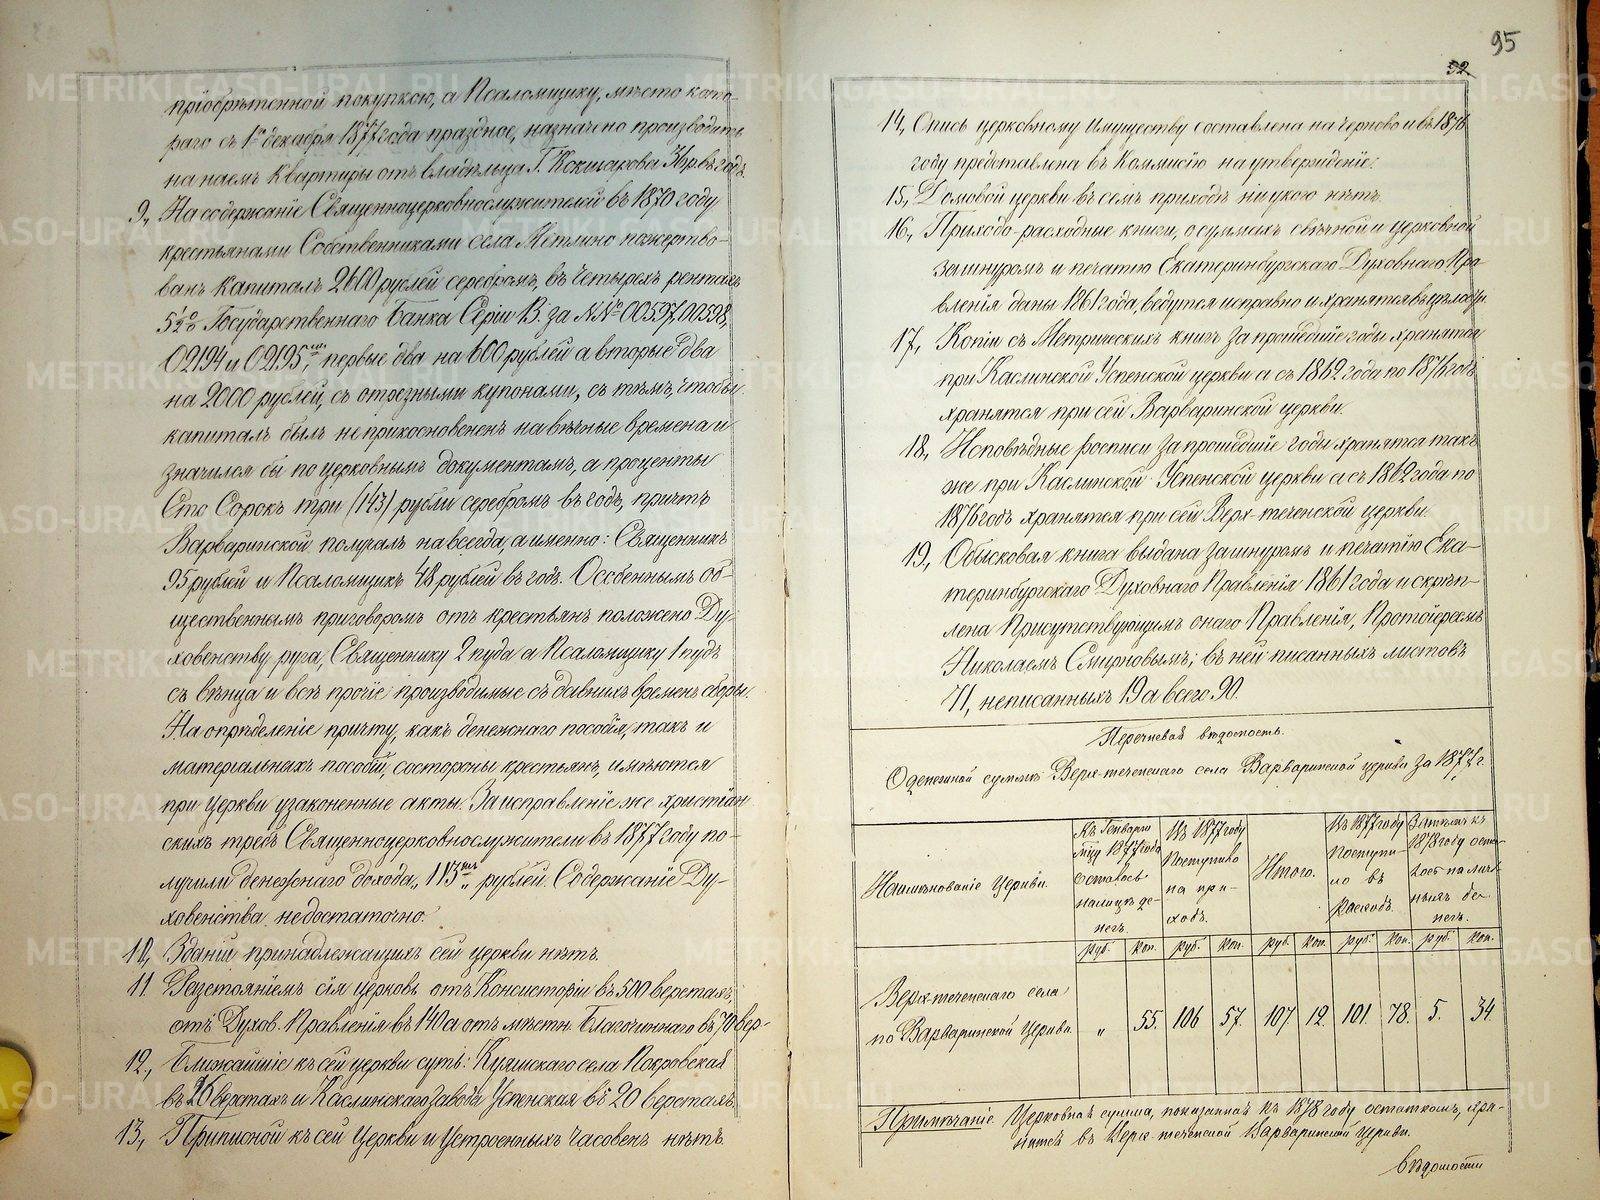 пріобрѣтенной покупкою, а Псаломщику, мѣсто кото-
раго съ 1го декабря 1877 года праздное, назначено производить
на наемъ квартиры отъ владѣльца Г. Кокшарова 36 р. въ годъ.
9., На содержаніе Священноцерковнослужителей въ 1870 году
крестьянами Собственниками села Метлино пожертво-
ванъ капиталъ 2600 рублей серебромъ, въ четырехъ рентахъ
5½% Государственнаго Банка Серіи В. за №№ 00597, 00598,
02194 и 02195, первые два на 600 рублей а вторые два
на 2000 рублей, съ отрезными купонами, съ тѣмъ, чтобы
капиталъ былъ неприкосновененъ на вѣчные времена и
значился бы по церковнымъ документамъ, а проценты
Сто Сорокъ три (143) рубли серебромъ въ годъ, причтъ
Варваринской получалъ навсегда, а именно: Священникъ
95 рублей и Псаломщикъ 48 рублей въ годъ. Особеннымъ об-
щественнымъ приговоромъ отъ крестьянъ положено Ду-
ховенству руга, Священнику 2 пуда а Псаломщику 1 пудъ
съ вѣнца и всѣ прочіе производимые съ давнихъ временъ сборы.
На опредѣленіе причту, какъ денежнаго пособія, такъ и
матеріальныхъ пособій, состороны крестьянъ, имѣются
при церкви узаконенные акты. За исправленіе же христіан
скихъ требъ Священноцерковнослужители въ 1877 году по-
лучили денежнаго дохода „ 115 „ рублей. Содержаніе Ду-
ховенства недостаточно.
10., Зданій принадлежащихъ сей церкви нѣтъ.
11. Разстояніемъ сія церковь отъ Консисторіи въ 500 верстахъ,
отъ Духов. Правленія въ 140 а отъ мѣстн. Благочиннаго въ 70 вер-
12., Ближайшіе къ сей церкви суть: Куяшскаго села Покровская
въ 26 верстахъ и Каслинскаго завода Успенская въ 20 верстахъ.
13., Приписной къ сей Церкви и Устроенныхъ Часовенъ нѣтъ.
95
52
14., Опись церковному имуществу составлена на черново и въ 1876
году представлена въ Коммисію на утвержденіе.
15., Домовой церкви въ семъ приходѣ ни у кого нѣтъ.
16., Приходо-расходные книги, о суммахъ свѣчной и церковной
за шнуромъ и печатію Екатеринбургскаго Духовнаго Пра-
вленія даны 1861 года, ведутся исправно и хранятся въ цѣлости.
17., Копіи съ Метрическихъ книгъ за прошедшіе годы хранятся
при Каслинской Успенской церкви а съ 1862 года по 1876 годъ
хранятся при сей Варваринской церкви.
18., Исповѣдные росписи за прошедшіе годы хранятся такъ
же при Каслинской Успенской церкви а съ 1862 года по
1876 годъ хранятся при сей Верх-теченской церкви.
19., Обысковая книга выдана за шнуромъ и печатію Ека-
теринбургскаго Духовнаго Правленія 1861 года и скрѣп-
лена Присутствующимъ онаго Правленія, Протоіереемъ
Николаемъ Смирновымъ; въ ней писанныхъ листовъ
71, неписанныхъ 19 а всего 90.
Перечневая вѣдомость.
О денежной суммѣ Верх-теченскаго села Варваринской церкви за 1877 г.
Наименованіе Церкви.
Къ Генварю мцу 1877 года оставалось на лицо денегъ.
Въ 1877 году поступило на приходъ.
Итого.
Въ 1877 году поступило въ расходъ.
Затѣмъ къ 1878 году остаетъ наличныхъ денегъ.
руб. коп. руб. коп. руб. коп. руб. коп. руб. коп.
Верх-теченскаго села
по Варваринской Церкви. „ 55. 106 57. 107 12. 101. 78. 5. 34.
Примѣчаніе. Церковная сумма, показанная къ 1878 году остаткомъ, хра-
нится въ Верх-теченской Варваринской Церкви.
Вѣдомости
METRIKI.GASO-URAL.RU